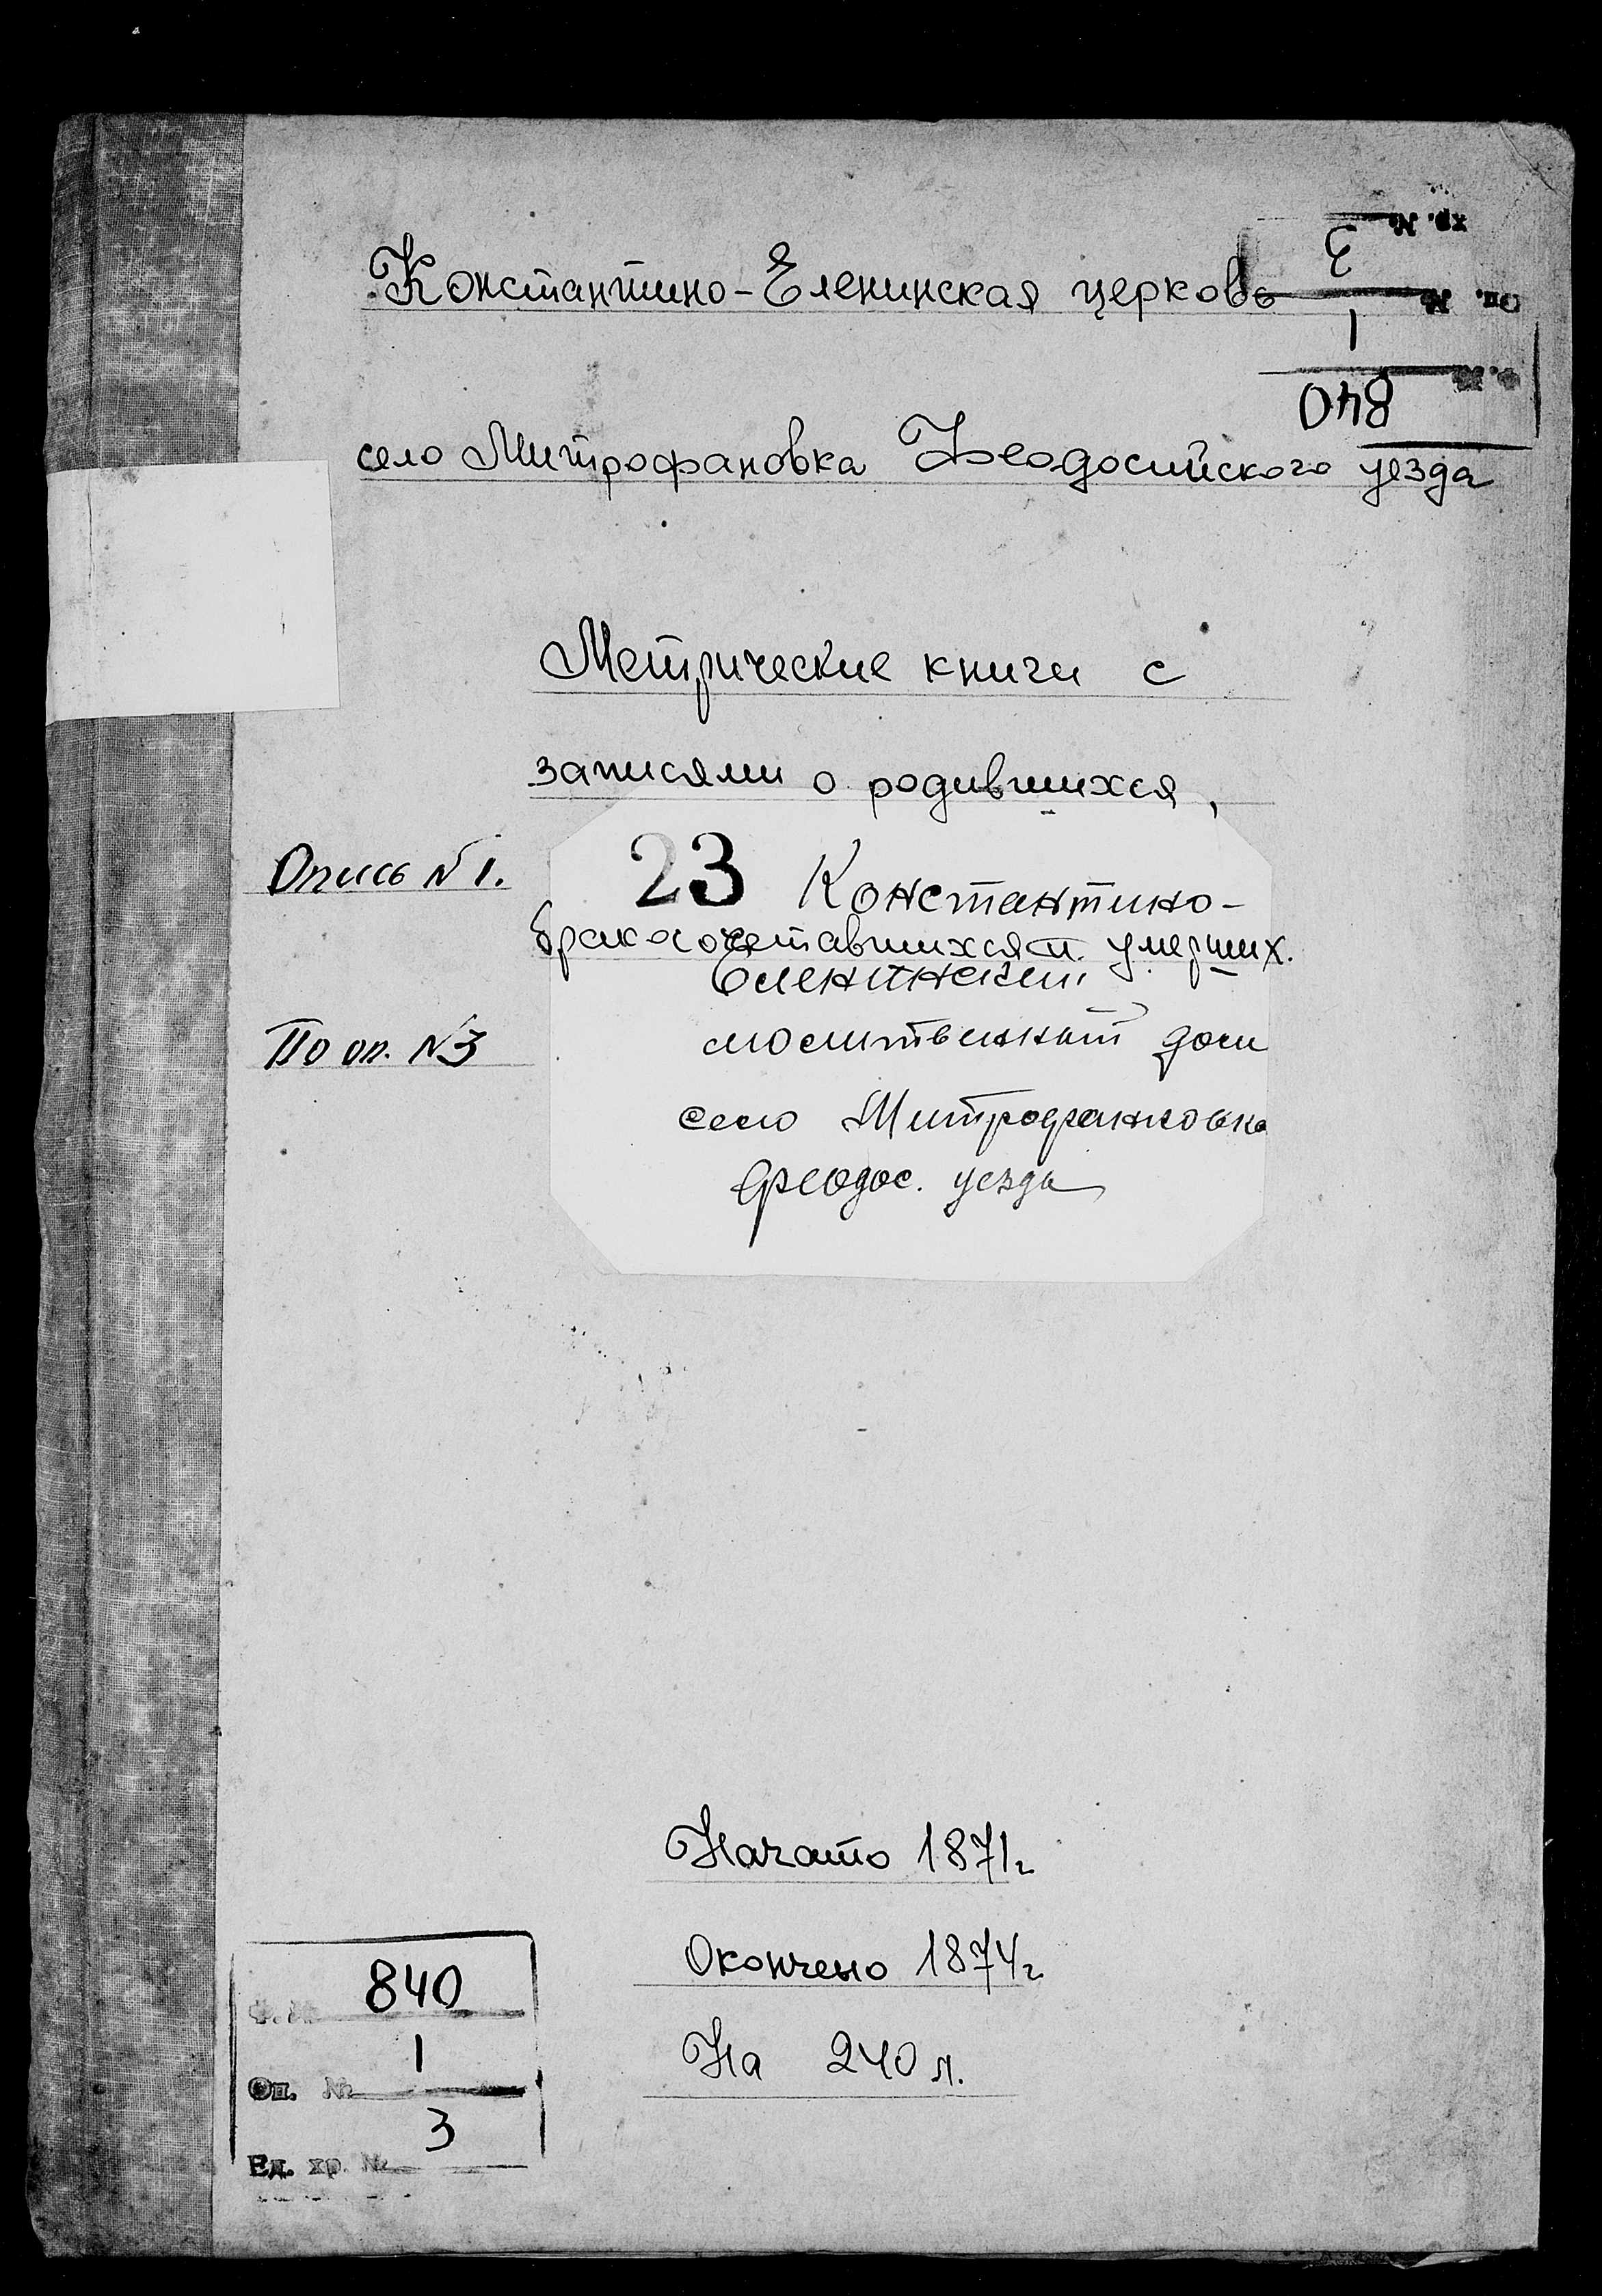 хр. №
3
Оп. №
1
Ф. №
840
Константино-Еленинская церковь
село Митрофановка Феодосийского уезда
Метрические книги с
записями о родившихся,
Опись №1.
23 Константино-
бракосочетавшихся и умерших.
Еленинский
молитвенный дом
По оп. №3
село Митрофановка
Феодос. уезда
Начато 1871г
Окончено 1874г
На 240 л.
Ф. № 840
Оп. № 1
Ед. хр. № 3